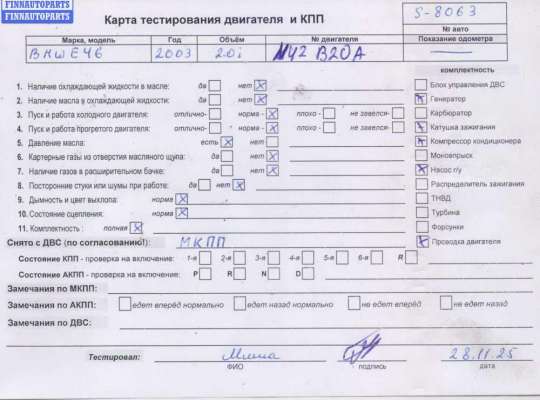 FINNAUTOPARTS
FINNAUTOPARTS
Карта тестирования двигателя и КПП
S-8063
№ авто
Марка, модель Год Объём № двигателя Показание одометра
BMW E46 2003 2.0i N42 B20A
комплектность
1. Наличие охлаждающей жидкости в масле: да нет x Блок управления ДВС
2. Наличие масла в охлаждающей жидкости: да нет x Генератор
3. Пуск и работа холодного двигателя: отлично- норма - x плохо - не завелся- Карбюратор
4. Пуск и работа прогретого двигателя: отлично- норма - x плохо - не завелся- Катушка зажигания
5. Давление масла: есть x нет Компрессор кондиционера
6. Картерные газы из отверстия масляного щупа: да нет x Моновпрыск
7. Наличие газов в расширительном бачке: да нет x Насос г/у
8. Посторонние стуки или шумы при работе: да нет x Распределитель зажигания
9. Дымность и цвет выхлопа: норма x ТНВД
10. Состояние сцепления: норма x Турбина
11. Комплектность : полная x Форсунки
Снято с ДВС (по согласованию!): МКПП Проводка двигателя
Состояние КПП - проверка на включение: 1-я 2-я 3-я 4-я 5-я 6-я R
Состояние АКПП - проверка на включение: P R N D
Замечания по МКПП:
Замечания по АКПП: едет вперёд нормально едет назад нормально не едет вперёд не едет назад
Замечания по ДВС:
Тестировал: 28.11.25
ФИО подпись дата